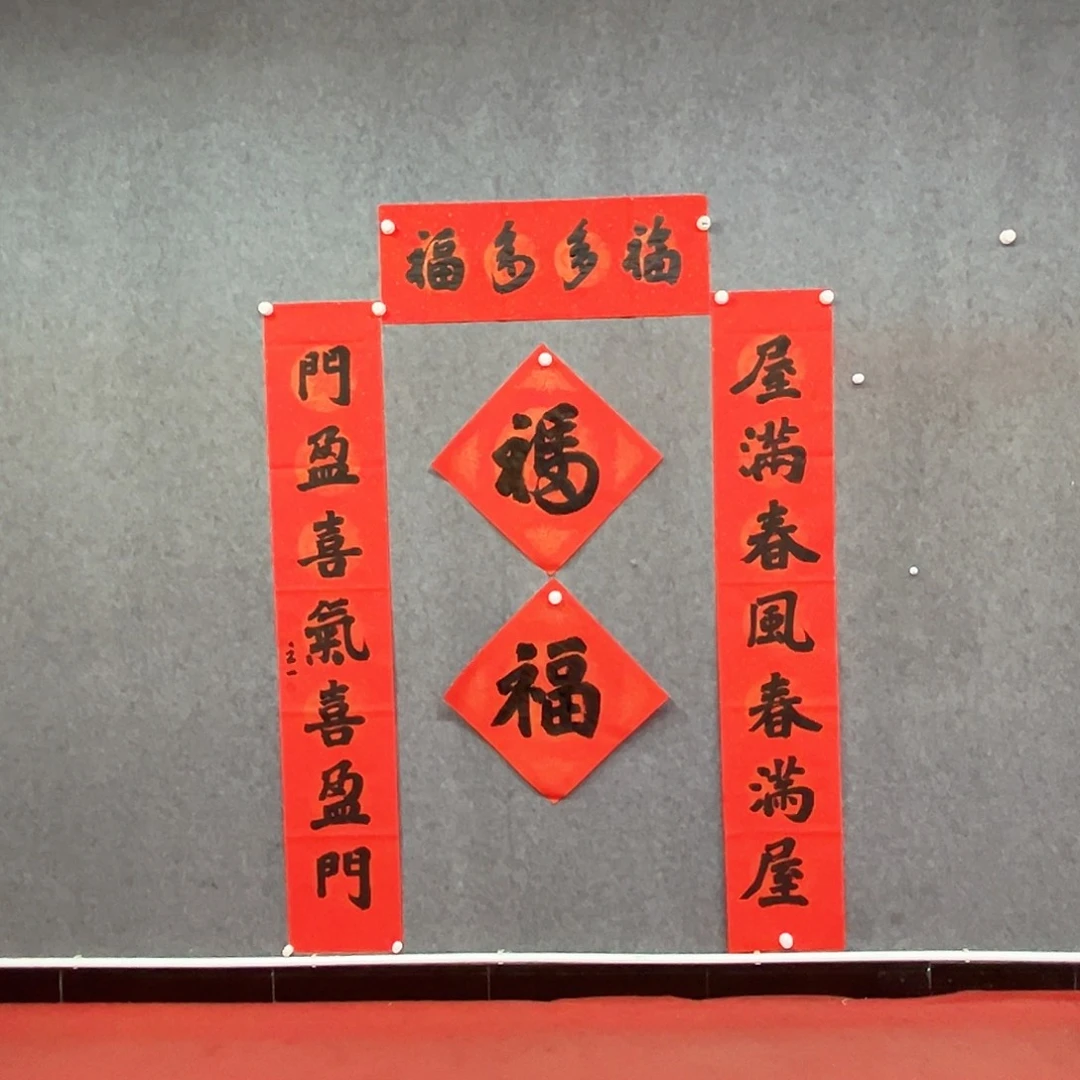 福多多福
屋满春風春满屋
門盈喜氣喜盈門
福
福